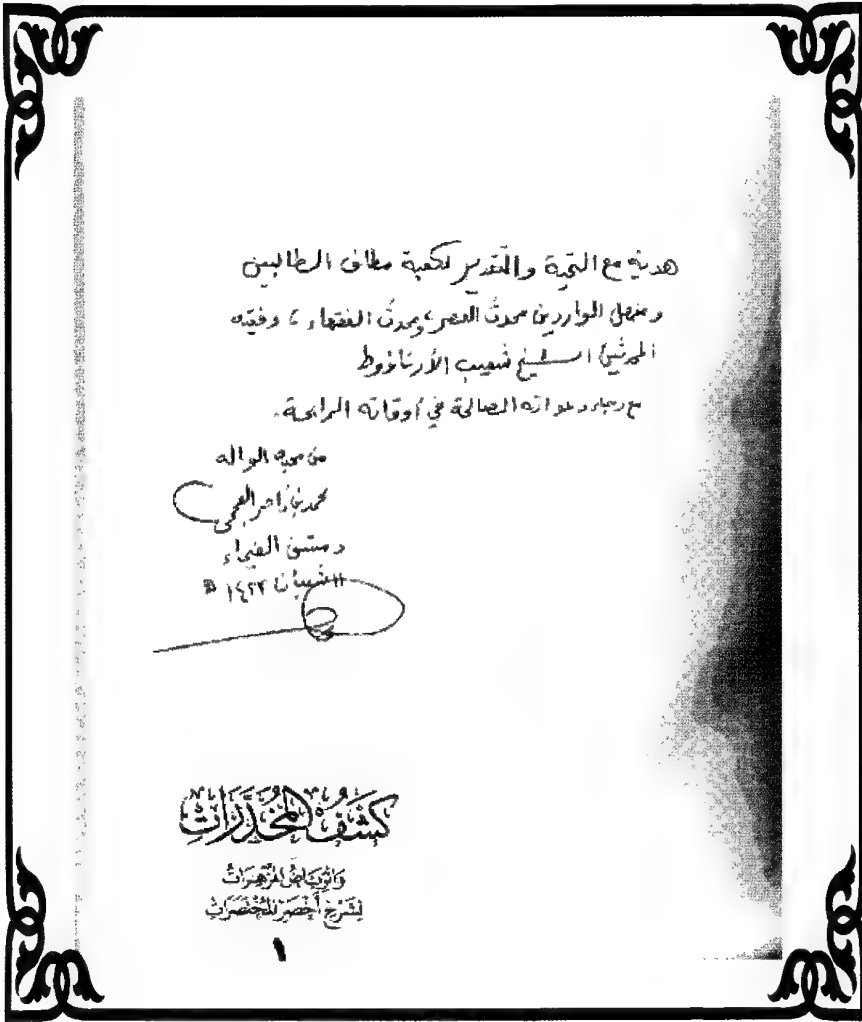 هدية مع التحية والتقدير لكعبة مطاف الطالبين
ومنهل الواردين محدث العصر، ومحدث الفقهاء، وفقيه
المحدثين الشيخ شعيب الأرناؤوط
مع رجاء دعواته الصالحة في أوقاته الرابحة.
من محبه الواله
محمد بن ناصر العجمي
دمشق الفيحاء
١١ شعبان ١٤٢٣ هـ
كَشْفُ المُخَدَّرَاتِ
وَالرِّيَاضُ المُزْهِرَاتُ
لِشَرْحِ أَخْصَرِ المُخْتَصَرَاتِ
١